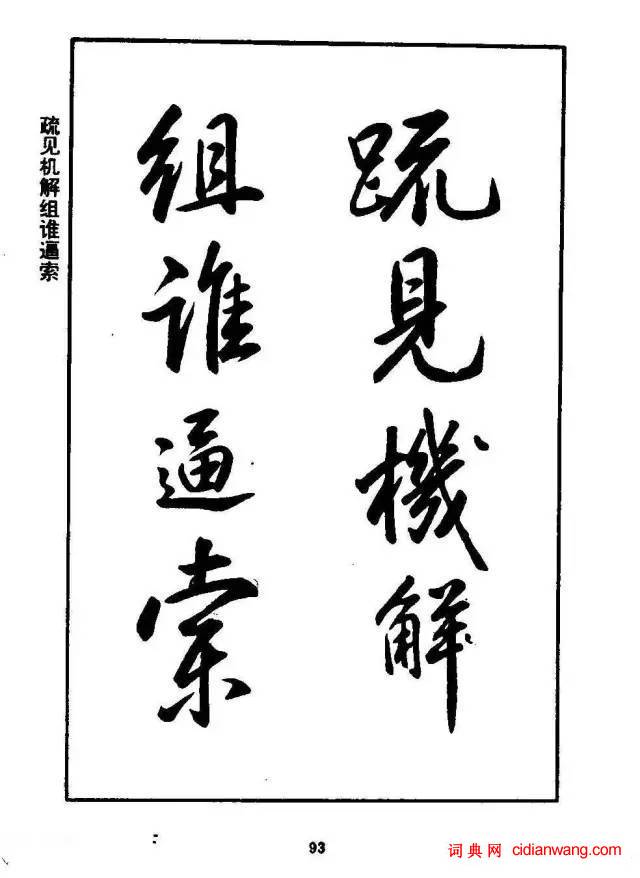 疏見機解
組誰逼索
疏见机解组谁逼索
93
词典网 cidianwang.com